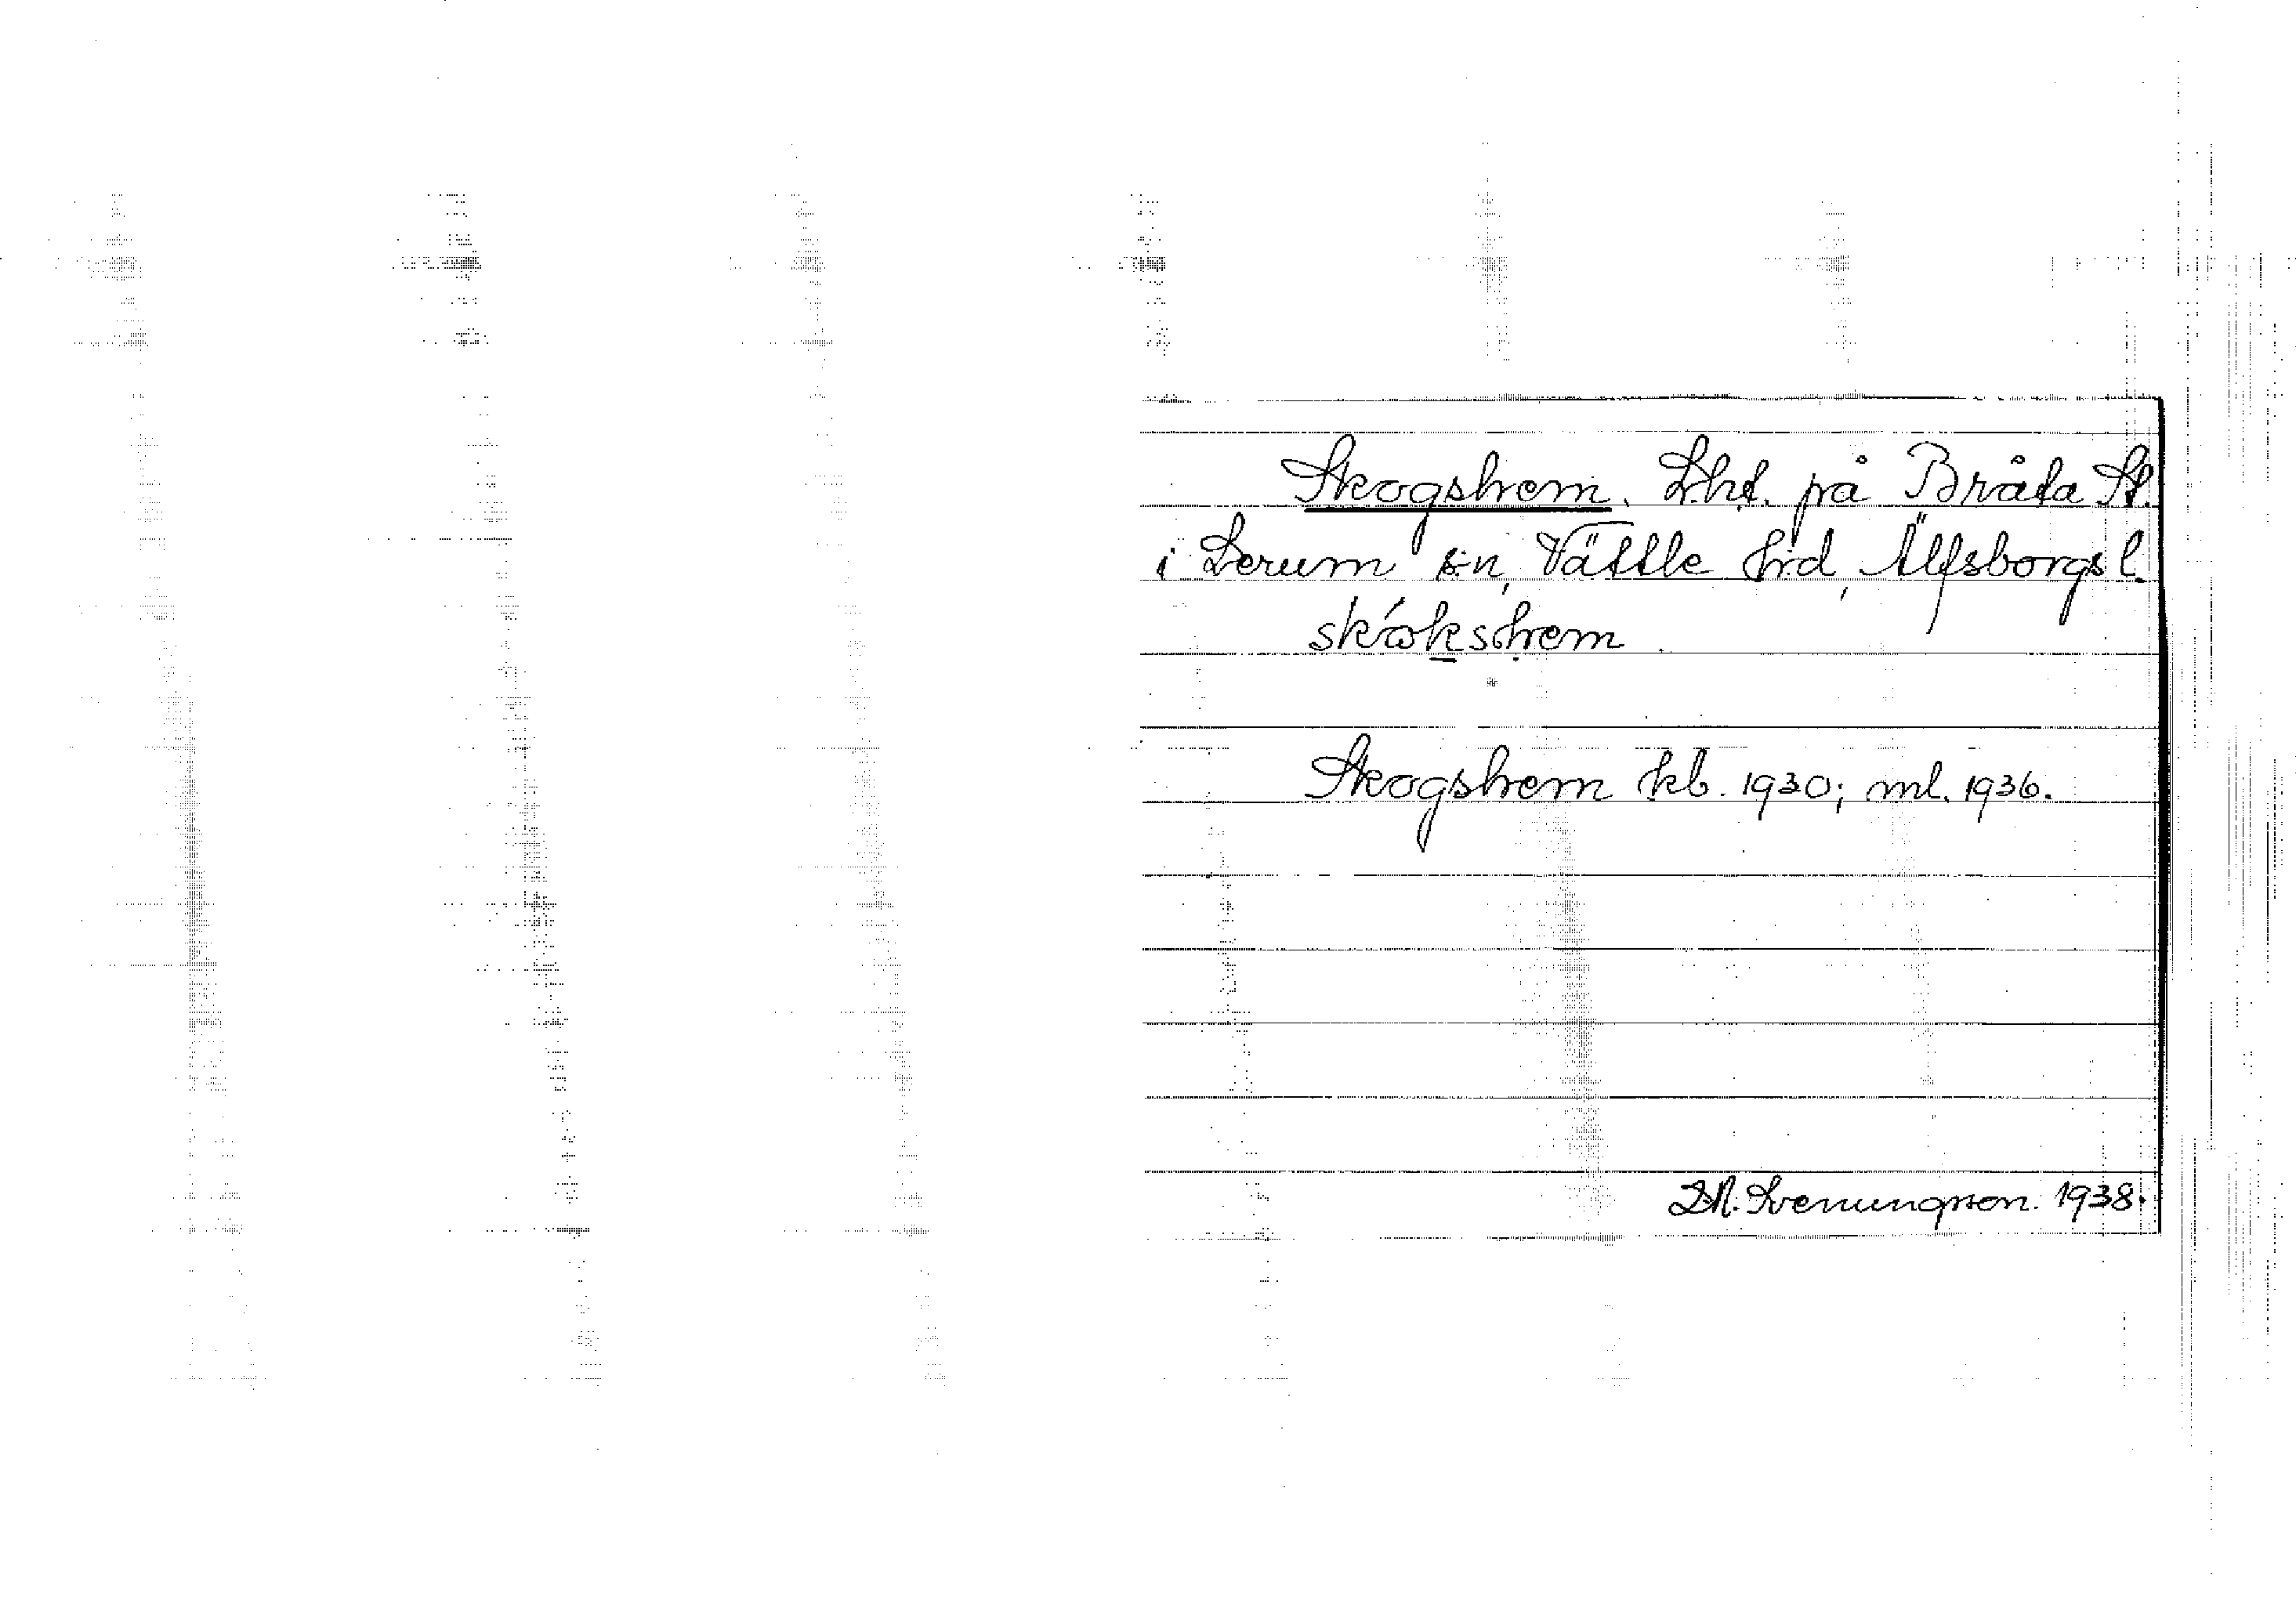 Skogshem. Lht. på Bråta St.
i Lerum sn, Vättle hd, Älfsborgs l.
skókshem
Skogshem kb. 1930; ml. 1936.
Svenungsson. 1938.